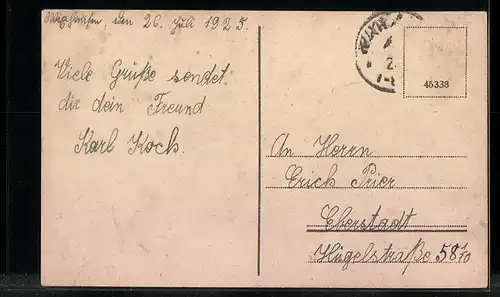 den 26. Juli 1925.
Viele Grüße sendet
dir dein Freund
Karl Koch.
45338
An Herrn
Erich Prier
Eberstadt
Hügelstraße 58 1/10